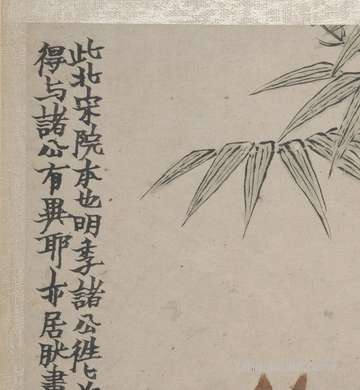 此北宋院本也明季諸公往〻
得与諸公有異耶亦居肰畫